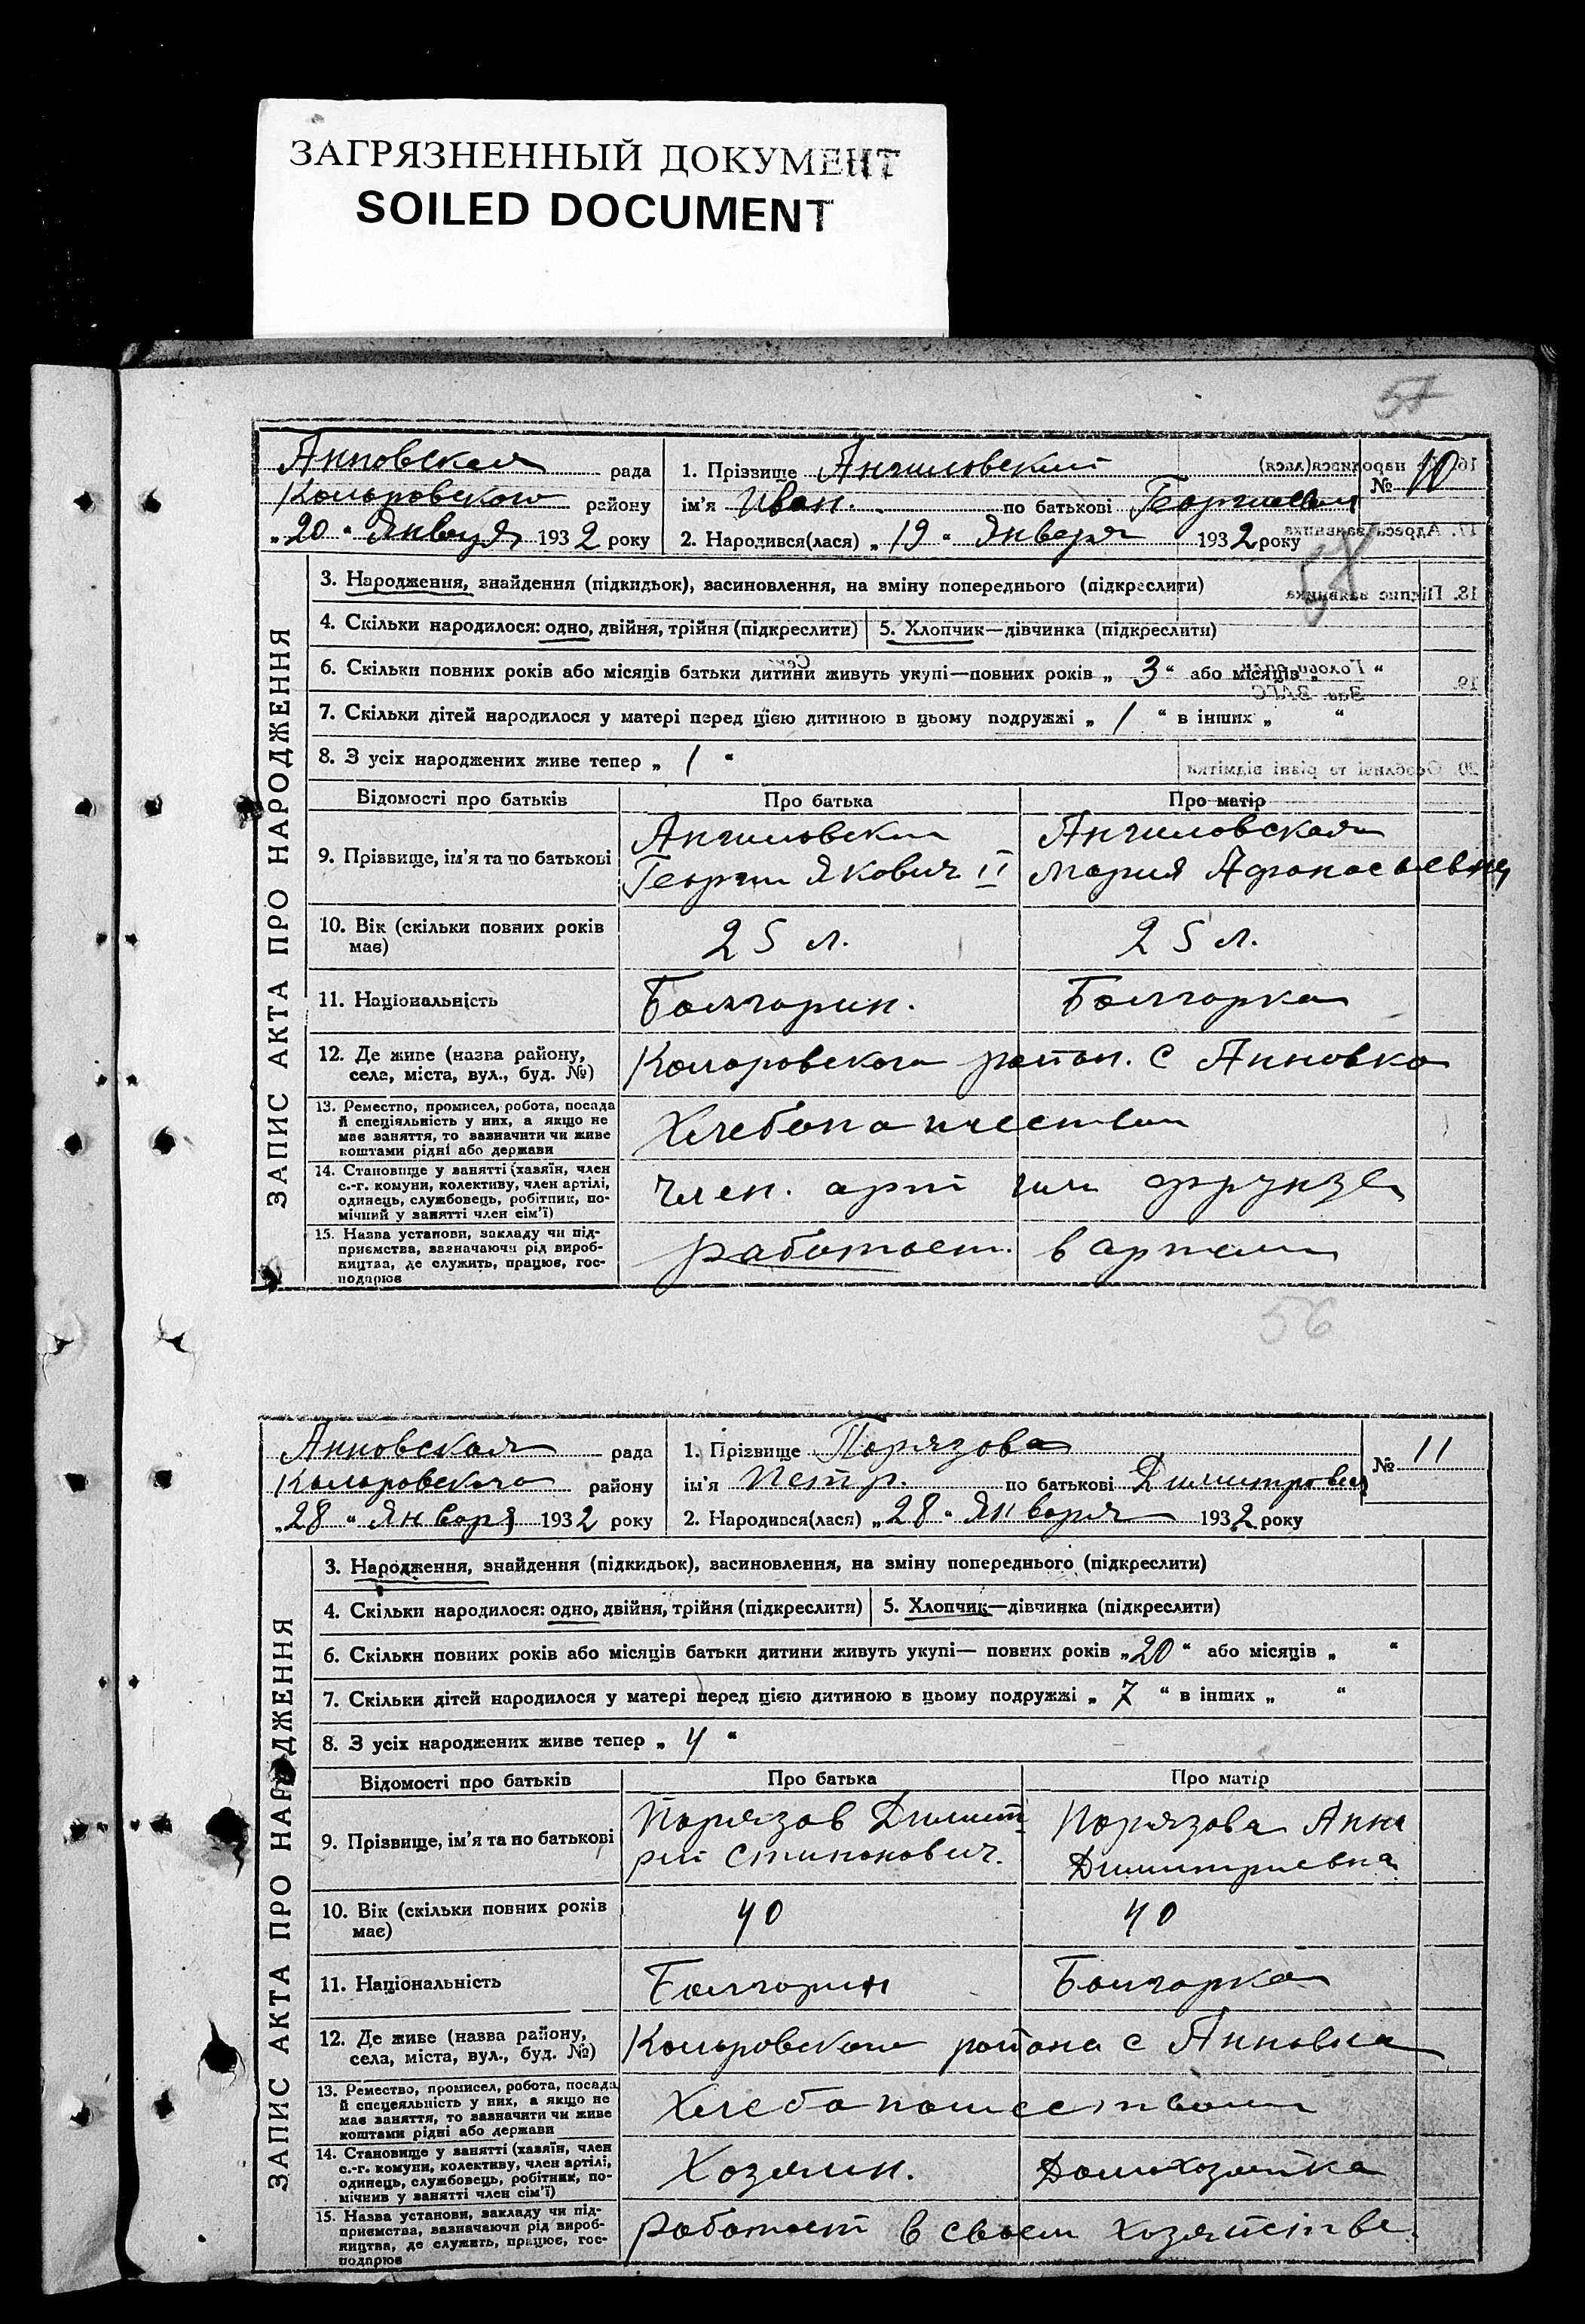 ЗАГРЯЗНЕННЫЙ ДОКУМЕНТ
SOILED DOCUMENT
57
Анновская рада
Коларовского району
„20“ Января 1932 року
1. Прізвище Ангиловский
ім'я Иван. по батькові Георгиевич
2. Народився(лася) „19“ Января 1932 року
№ 10
57
ЗАПИС АКТА ПРО НАРОДЖЕННЯ
3. Народження, знайдення (підкидьок), васиновлення, на зміну попереднього (підкреслити)
4. Скільки народилося: одно, двійня, трійня (підкреслити) 5. Хлопчик—дівчинка (підкреслити)
6. Скільки повних років або місяців батьки дитини живуть укупі—повних років „3“ або місяців „ “
7. Скільки дітей народилося у матері перед цією дитиною в цьому подружжі „1“ в інших „ “
8. З усіх народжених живе тепер „1“
Відомості про батьків Про батька Про матір
9. Прізвище, ім'я та по батькові
Ангиловский
Георгий Якович II
Ангиловская
Мария Афонасьевна
10. Вік (скільки повних років
має)
25 л. 25 л.
11. Національність Болгарин. Болгарка
12. Де живе (назва району,
села, міста, вул., буд. №)
Коларовского район. с Анновка
13. Ремество, промисел, робота, посада
й спеціяльність у них, а якщо не
має заняття, то зазначити чи живе
коштами рідні або держави
Хлебопашеством
14. Становище у занятті (хазяїн, член
с.-г. комуни, колективу, член артілі,
одинець, службовець, робітник, по-
мічний у занятті член сім'ї)
член. арт им Фрунзе
15. Назва установи, закладу чи під-
приємства, зазначаючи рід вироб-
ництва, де служить, працює, гос-
подарює
работает. в артели
56
Анновская рада
Коларовского району
„28“ Января 1932 року
1. Прізвище Порязова
ім'я Петр. по батькові Димитрович
2. Народився(лася) „28“ Января 1932 року
№ 11
ЗАПИС АКТА ПРО НАРОДЖЕННЯ
3. Народження, знайдення (підкидьок), васиновлення, на зміну попереднього (підкреслити)
4. Скільки народилося: одно, двійня, трійня (підкреслити) 5. Хлопчик—дівчинка (підкреслити)
6. Скільки повних років або місяців батьки дитини живуть укупі— повних років „20“ або місяців „ “
7. Скільки дітей народилося у матері перед цією дитиною в цьому подружжі „7“ в інших „ “
8. З усіх народжених живе тепер „4“
Відомості про батьків Про батька Про матір
9. Прізвище, ім'я та по батькові
Порязов Димит-
рий Стипонович.
Порязова Анна
Димитриевна
10. Вік (скільки повних років
має)
40 40
11. Національність Болгарин Болгарка
12. Де живе (назва району,
села, міста, вул., буд. №)
Коларовского района с Анновка
13. Ремество, промисел, робота, посада
й спецеяльність у них, а якщо не
має заняття, то зазначити чи живе
коштами рідні або держави
Хлебопашеством
14. Становище у занятті (хазяїн, член
с.-г. комуни, колективу, член артілі,
одинець, службовець, робітник, по-
мічнив у занятті член сім'ї)
Хозяин. Домохозяйка
15. Назва установи, закладу чи під-
приємства, зазначаючи рід вироб-
ництва, де служить, працює, гос-
подарює
Работает в своем хозяйстве.